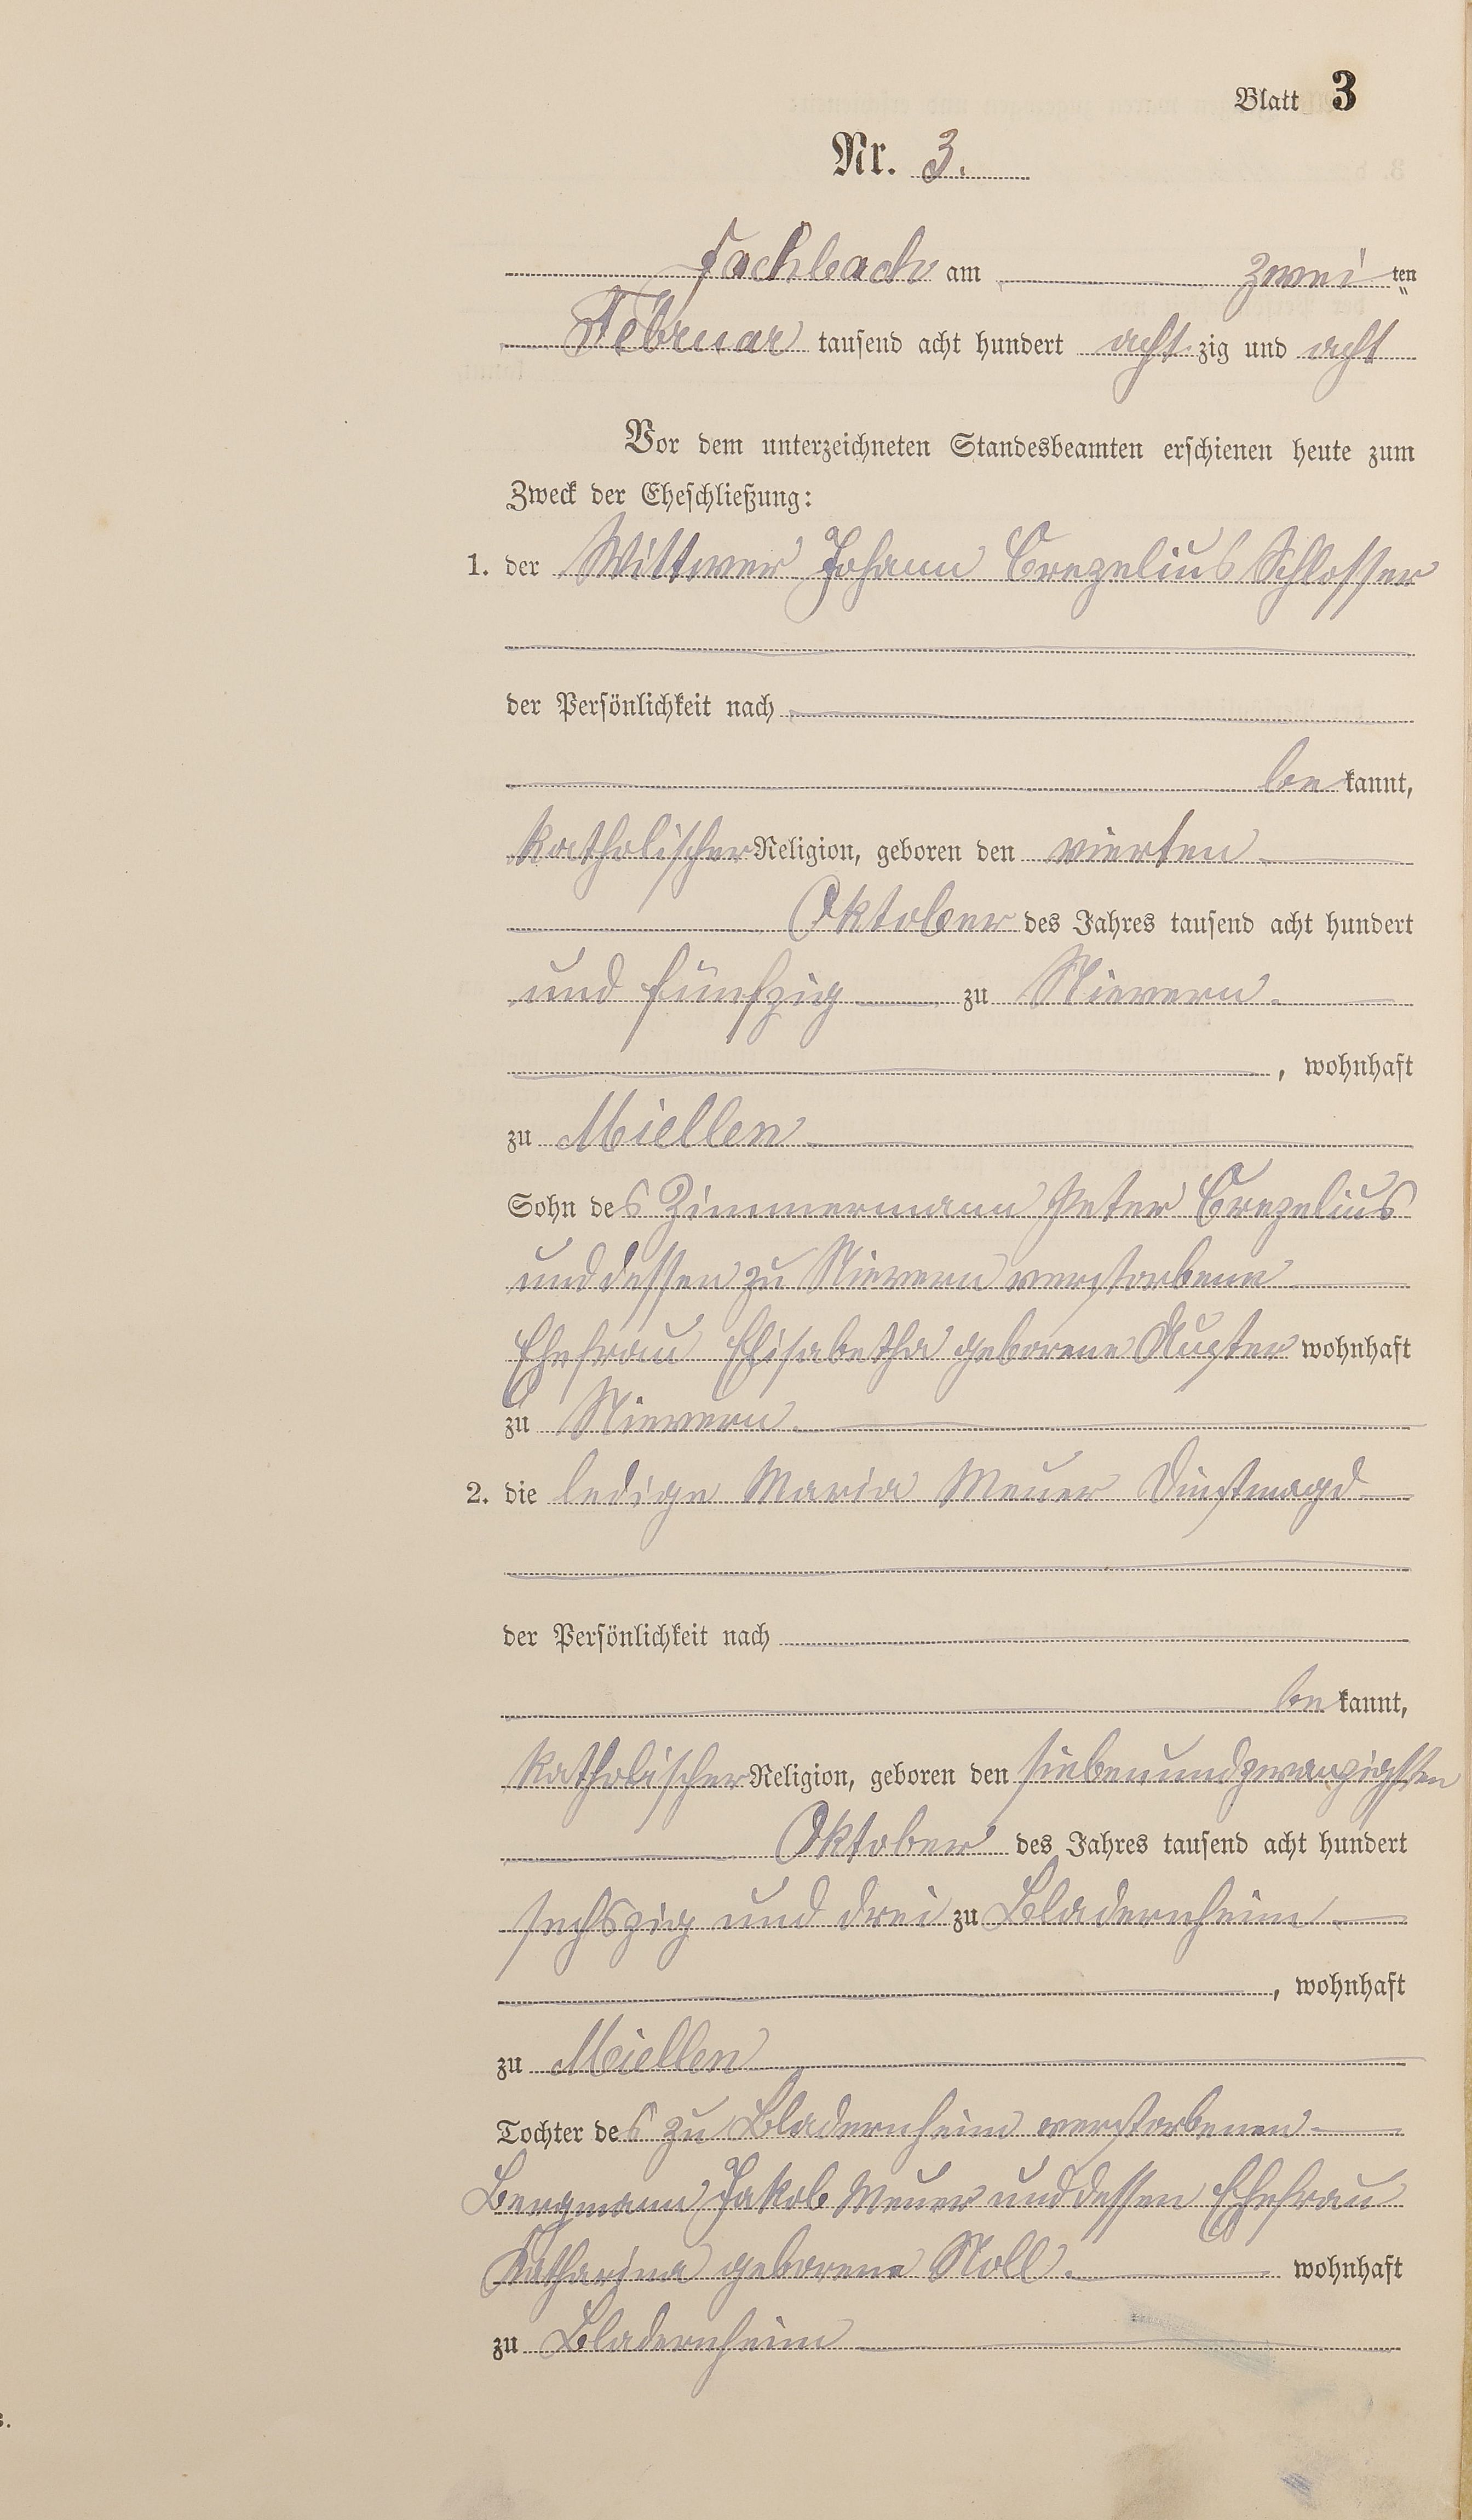 Blatt 3
Nr. 3.
Fachbach am zwei ten
Februar tausend acht hundert acht zig und acht
Vor dem unterzeichneten Standesbeamten erschienen heute zum
Zweck der Eheschließung:
1. der Wittwer Johann Crezelius Schlosser
der Persönlichkeit nach
be kannt,
katholischer Religion, geboren den vierten
Oktober des Jahres tausend acht hundert
und fünfzig zu Nievern.
, wohnhaft
zu Miellen
Sohn des Zimmermann Peter Crezelius
und dessen zu Nievern verstorbene
Ehefrau Elisabetha geborene wohnhaft
zu Nievern.
2. die ledige Maria Meuer Dinstmagd
der Persönlichkeit nach
be kannt,
katholischer Religion, geboren den siebenundzwanzigsten
Oktober des Jahres tausend acht hundert
sechszig und drei zu Bladernheim
, wohnhaft
zu Miellen
Tochter des zu Bladernheim verstorbenen
Bergmann Jakob Meuer und dessen Ehefrau
Katharina geborene Noll. wohnhaft
zu Bladernheim